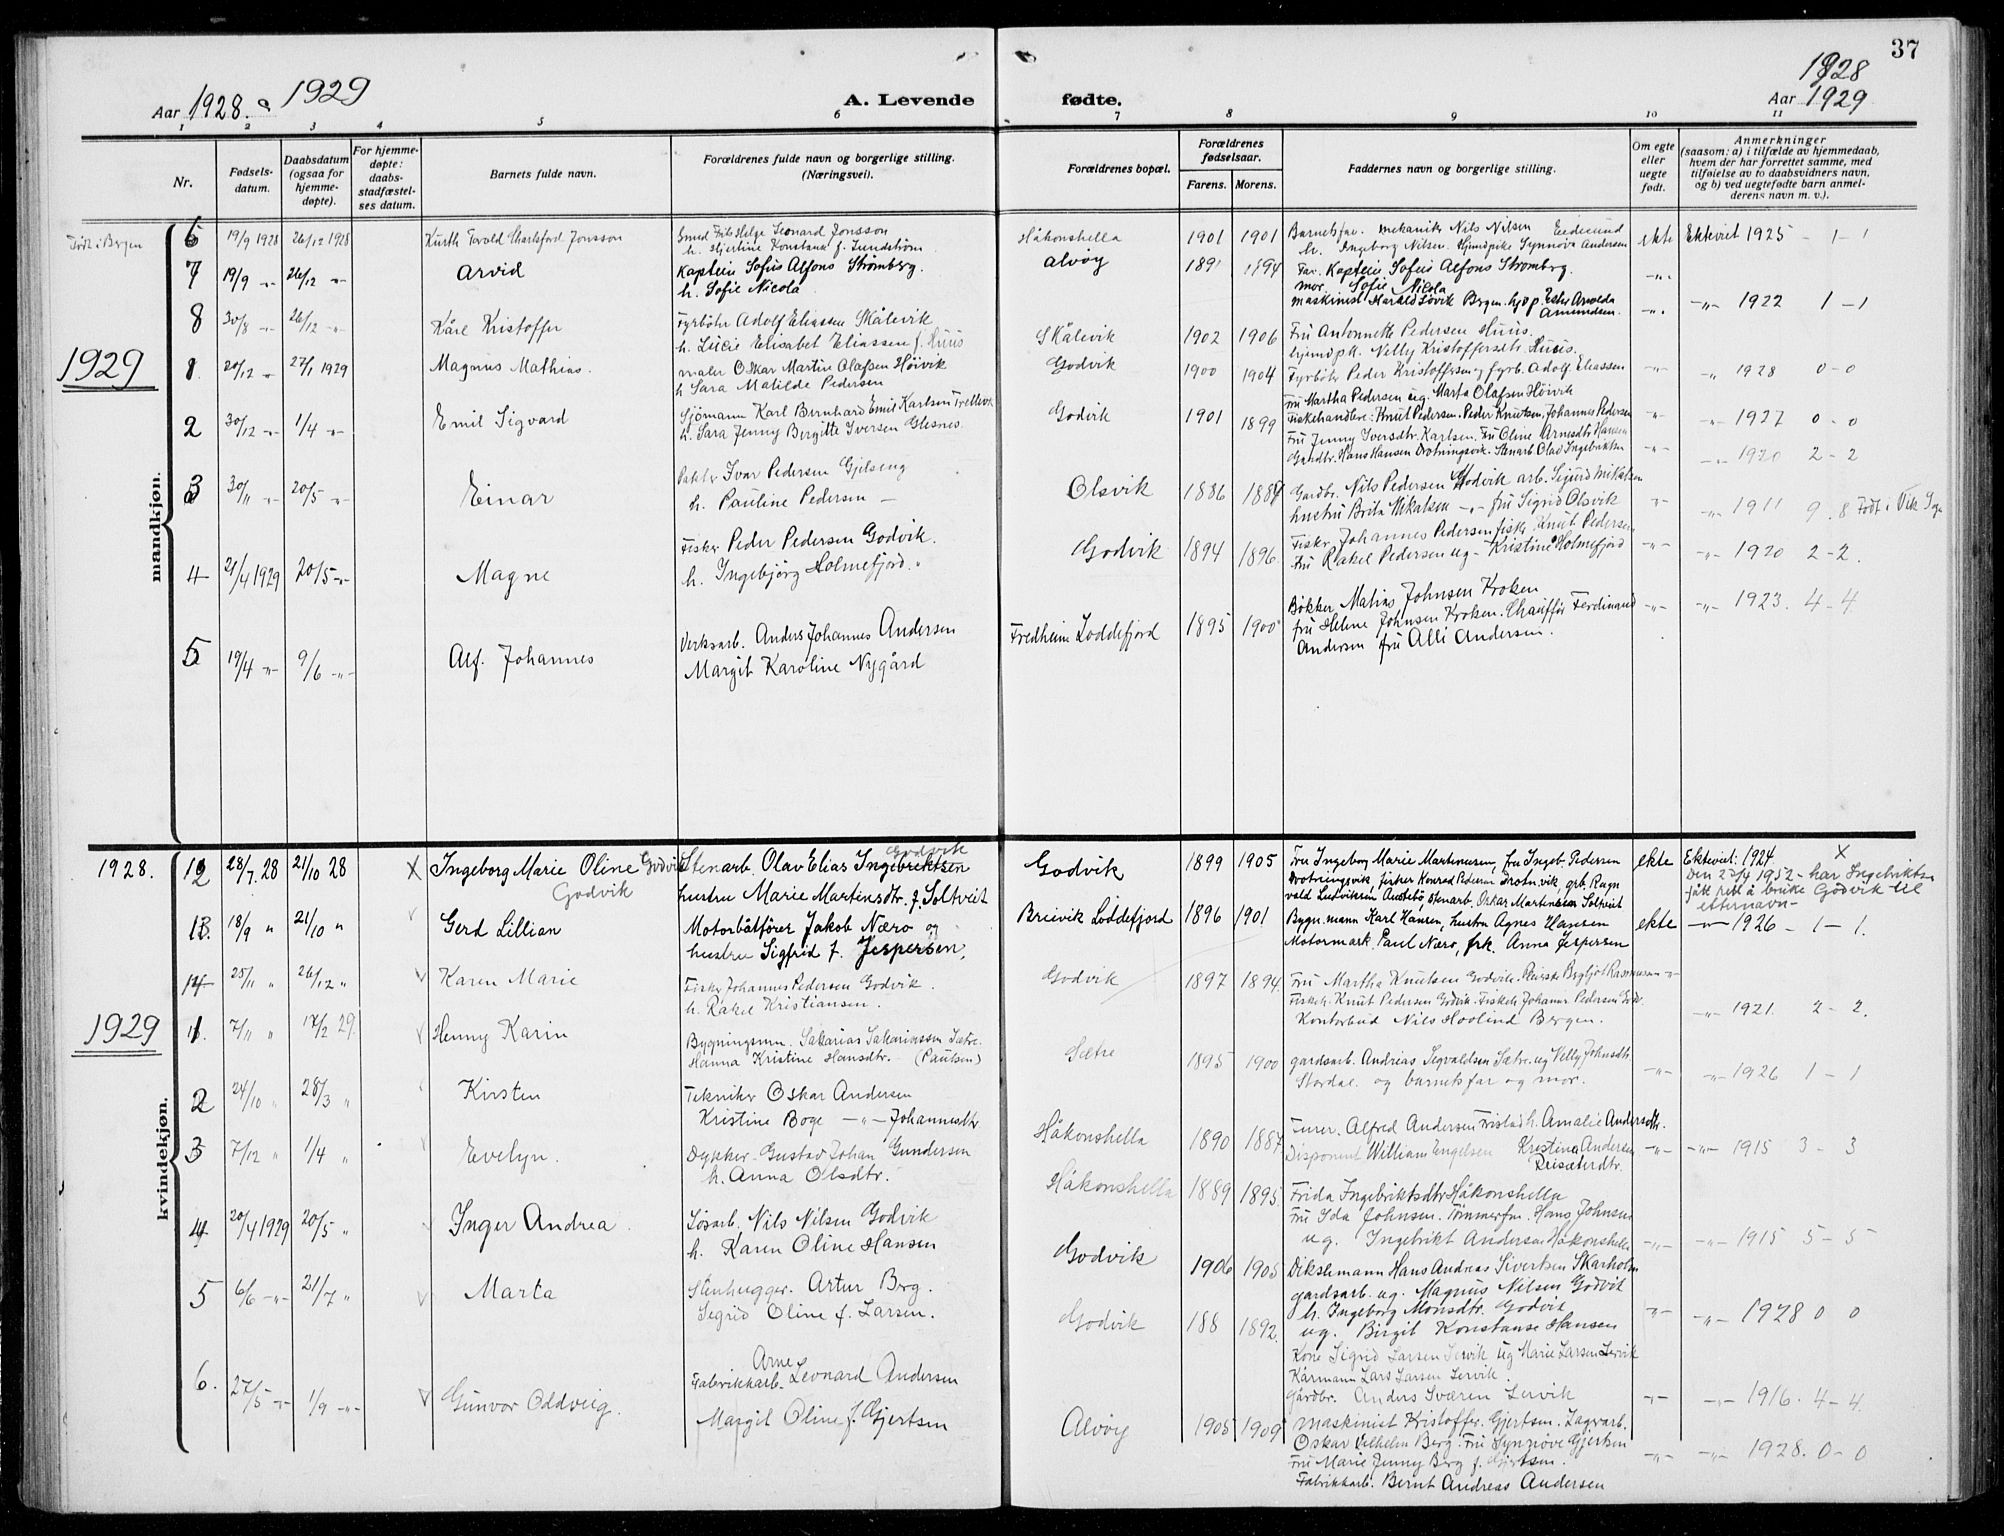 37
Aar 1928 o 1929
A. Levende fødte.
1928
Aar 1929
1 2 3 4 5 6 7 8 9 10 11
Nr.
Fødsels-
datum.
Daabsdatum
(ogsaa for
hjemme-
døpte).
For hjemme-
døpte:
daabs-
stadfæstel-
ses datum.
Barnets fulde navn.
Forældrenes fulde navn og borgerlige stilling.
(Næringsvei).
Forældrenes bopæl.
Forældrenes
fødselsaar.
Farens. Morens.
Faddernes navn og borgerlige stilling.
Om egte
eller
uegte
født.
Anmerkninger
(saasom: a) i tilfælde av hjemmedaab,
hvem der har forrettet samme, med
tilføielse av to daabsvidners navn,
og b) ved uegtefødte barn anmel-
derens navn m. v.).
mandkjøn.
Født i Bergen
6 19/9 1928 26/12 1928 Kurth Torold Jonsson
Smed Leonard Jonsson
h. Hjertine Konstanse f. Lundstrøm
Håkonshella 1901 1901
Barnetsfar. mekanik Nils Nilsen
h. Ingeborg Nilsen. Synnøva Andersen
ekte Ekteviet 1925 - 1 - 1
7 19/9 -"- 26/12 -"- Arvid
Kaptein Sofus Alfons Strømberg.
h. Sofie Nicola
Alvøy 1891 1894
Far. Kaptein Sofus Alfons Strømberg.
mor. Sofie Nicola
-"- 1922 1 - 1
8 30/8 -"- 26/12 -"- Kåre Kristoffer
Fyrbøter Adolf Eliassen Skålevik
h. Lucie Elisabet Eliassen f. Huus
Skålevik 1902 1906
Fru Antonnette Pedersen Huus.
Nelly Kristoffersdtr. Huus.
1929
1 20/12 - 27/1 1929 Magnus Mathias.
maler Oskar Martin Olafsen Høivik
h. Sara Matilde Pedersen
Godvik 1900 1904
Fyrbøter Peder Kristoffersen og fyrb. Adolf Eliassen
Fru Martha Pedersen ug. Marta Olafsen Høivik
-"- 1928 0 - 0
2 30/12 -"- 1/4 -"- Emil Sigvard
Sjømann Karl Bernhard Emil Karlsen
h. Sara Jenny Bergitte Iversen Glesnes.
Godvik 1901 1899
Fiskehandlere: Knut Pedersen. Peder Knutsen, Johannes Pedersen
Fru Jenny Iversdtr. Karlsen. Fru Oline Arnesdtr Hansen
Gardbr. Hans Hansen Drotningsvik. Stenarb Olav Ingebriktsen
-"- 1927 0 - 0
-"- 1920 2 - 2
3 30/11 -"- 20/5 -"- Einar
Ivar Pedersen
h. Pauline Pedersen -
Olsvik 1886 1887
Gardbr. Nils Pedersen Godvik arb. Sigurd Mikalsen
hustru Brita Mikalsen -"- fru Sigrid Olsvik
-"- 1911 9 . 8 Født i Vik Sogn
4 21/4 1929 20/5 -"- Magne
Fisker Peder Pedersen Godvik.
h. Ingebjørg Holmefjord.
Godvik 1894 1896
Fisker Johannes Pedersen fisk. Knut Pedersen
fru Rakel Pedersen ug - Kristine Holmefjord
-"- 1920 2 - 2.
5 19/4 -"- 9/6 -"- Alf. Johannes
Verksarb. Anders Johannes Andersen
Margit Karoline Nygård
Fredheim Loddefjord 1895 1900
Bøkker Matias Johnsen Kroken
fru Helene Johnsen Kroken. Chauffør Ferdinand
Andersen fru Alli Andersen.
-"- 1923. 4 - 4.
kvindekjøn.
1928.
12 28/7. 28 21/10 28 X Ingeborg Marie Oline Godvik
Godvik
Stenarb. Olav Elias Ingebriktsen Godvik
hustru Marie Martinsdtr. f. Soltveit
Godvik 1899 1905
Fru Ingeborg Marie Martinusen, fru Ingeb. Pedersen
Drotningsvik, fisker Konrad Pedersen Drotn.vik, grb. Ragn
vald Ludviksen, stenarb. Oskar Martinsen Soltveit
ekte Ekteviet: 1924 X
den 23/4 1952 - har Ingebriktsen
fått rett å bruke Godvik til
etternavn -
13. 18/9 " 21/10 " Gerd Lillian
Motorbåtfører Jakob Nærø og
hustru Sigfrid f. Jespersen.
Breivik Loddefjord 1896 1901
Bygn. mann Karl Hansen, hustru Agnes Hansen
Motormask. Paul Nærø, frk. Anna Jespersen
ekte -"- 1926 - 1 - 1.
14 25/11 " 26/12 " Karen Marie
Fisker Johannes Pedersen Godvik.
h. Rakel Kristiansen.
Godvik 1897 1894
Fru Martha Knutsen Godvik.
Fiskeh. Knut Pedersen Godvik. Fiskeh Johannes Pedersen Godv.
Kontorbud Nils Hoolind Bergen.
-"- 1921. 2 - 2.
1929
1 7/11 " 17/2 29. Henny Karin
Bygningsm. Sakarias Sakariassen Sætre.
Hanna Kristine Hansdtr. (Paulsen)
Sætre 1895 1900
gardsarb. Andreas Segvaldsen Sætre. ug Nelly Johnsdtr
Stordal. og barnets far og mor.
-"- 1926 1 - 1
2 24/10 " 28/3 " Kirsten
Tekniker Oskar Andersen
Kristine Boge -"- Johannesdtr.
Håkonshella 1890 1887
Furer. Alfred Andersen h. Amalie Andersdtr.
Disponent William Engelsen Kristina Andersen
-"- 1915 3 - 3
3 7/12 " 1/4 " Evelyn.
Dykker. Gustav Johan Gundersen
h. Anna Olsdtr.
Håkonshella 1889 1895
Frida Ingebriktsdtr Håkonshella
Fru Ida Johnsen. Tømmerfm. Hans Johnsen
ug. Ingebrikt Andersen Håkonshella
-"- 1915 5 - 5
4 20/4 1929 20/5 " Inger Andrea
Løsarb. Nils Nilsen Godvik
h. Karen Oline Hansen
Godvik 1906 1905
Dikselmann Hans Andreas Sivertsen Skarholm
gardsarb. ug. Magnus Nilsen Godvik
h. Ingeborg Monsdtr. Godvik
ug. Birgit Konstanse Hansen
-"- 1928 0 - 0
5 6/6 -"- 21/7 " Marta
Stenhugger. Artur Berg.
Segrid Oline f. Larsen.
Godvik 188 1892.
Kone Sigrid Larsen Lervik ug Marie Larsen Lervik
Kårmann Lars Larsen Lervik.
Gårdbr. Anders Sværen Lervik
-"- 1916. 4 - 4.
6. 27/5 -"- 1/9 -"- Gunvor Oddveig.
Fabrikkarb. Arne Leonard Andersen
Margit Oline f. Gjertsen
Alvøy 1905 1909
Maskinist Kristoffer. Gjertsen. Lagerarb.
Oskar Vilhelm Berg. Fru Synnøve Gjertsen
Fru Marie Jenny Berg f. Gjertsen.
Fabrikkarb. Bernt Andreas Andersen
-"- 1928. 0 - 0